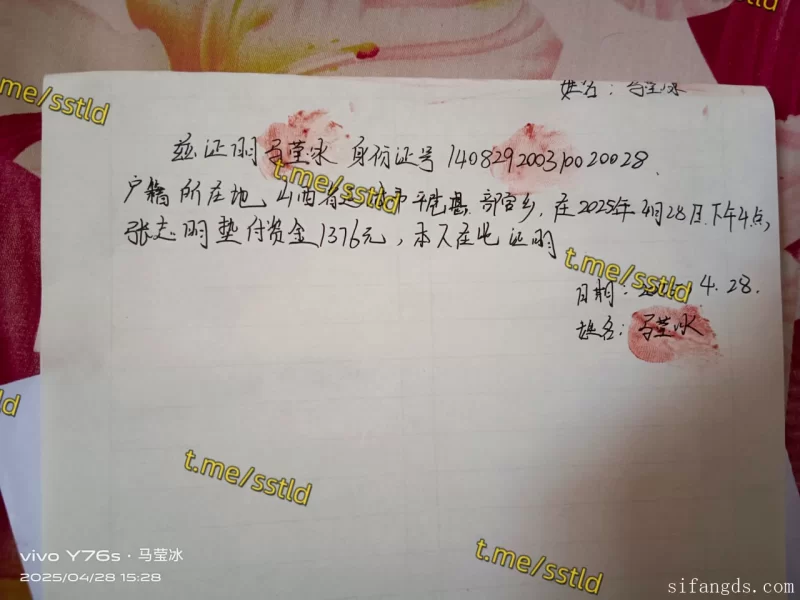 姓名：马莹冰
兹证明马莹冰 身份证号
户籍所在地 在2025年4月28日下午4点，
张志明垫付资金1376元，本人在此证明
日期： 4.28.
姓名：马莹冰
t.me/sstld
t.me/sstld
t.me/sstld
t.me/sstld
t.me/sstld
vivo Y76s · 马莹冰
2025/04/28 15:28
sifangds.com